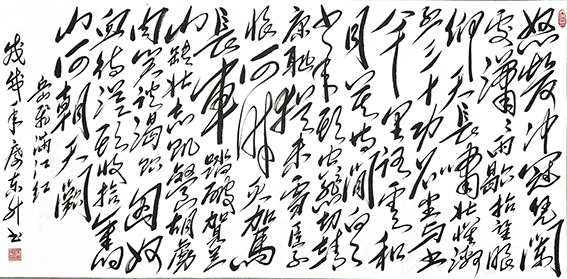 怒髮冲冠凭闌
處瀟瀟雨歇抬望眼
仰天長嘯壯懷激
烈三十功名尘与土
八千里路雲和
月莫等闲白了
少年头空悲切靖
康耻犹未雪臣子
恨何时灭加馬
長車踏破贺兰
山缺壮志飢餐胡虜
肉笑谈渴饮匈奴
血待從头收拾舊
山河朝天闕
岳飛满江红
戊戌年廖东升书